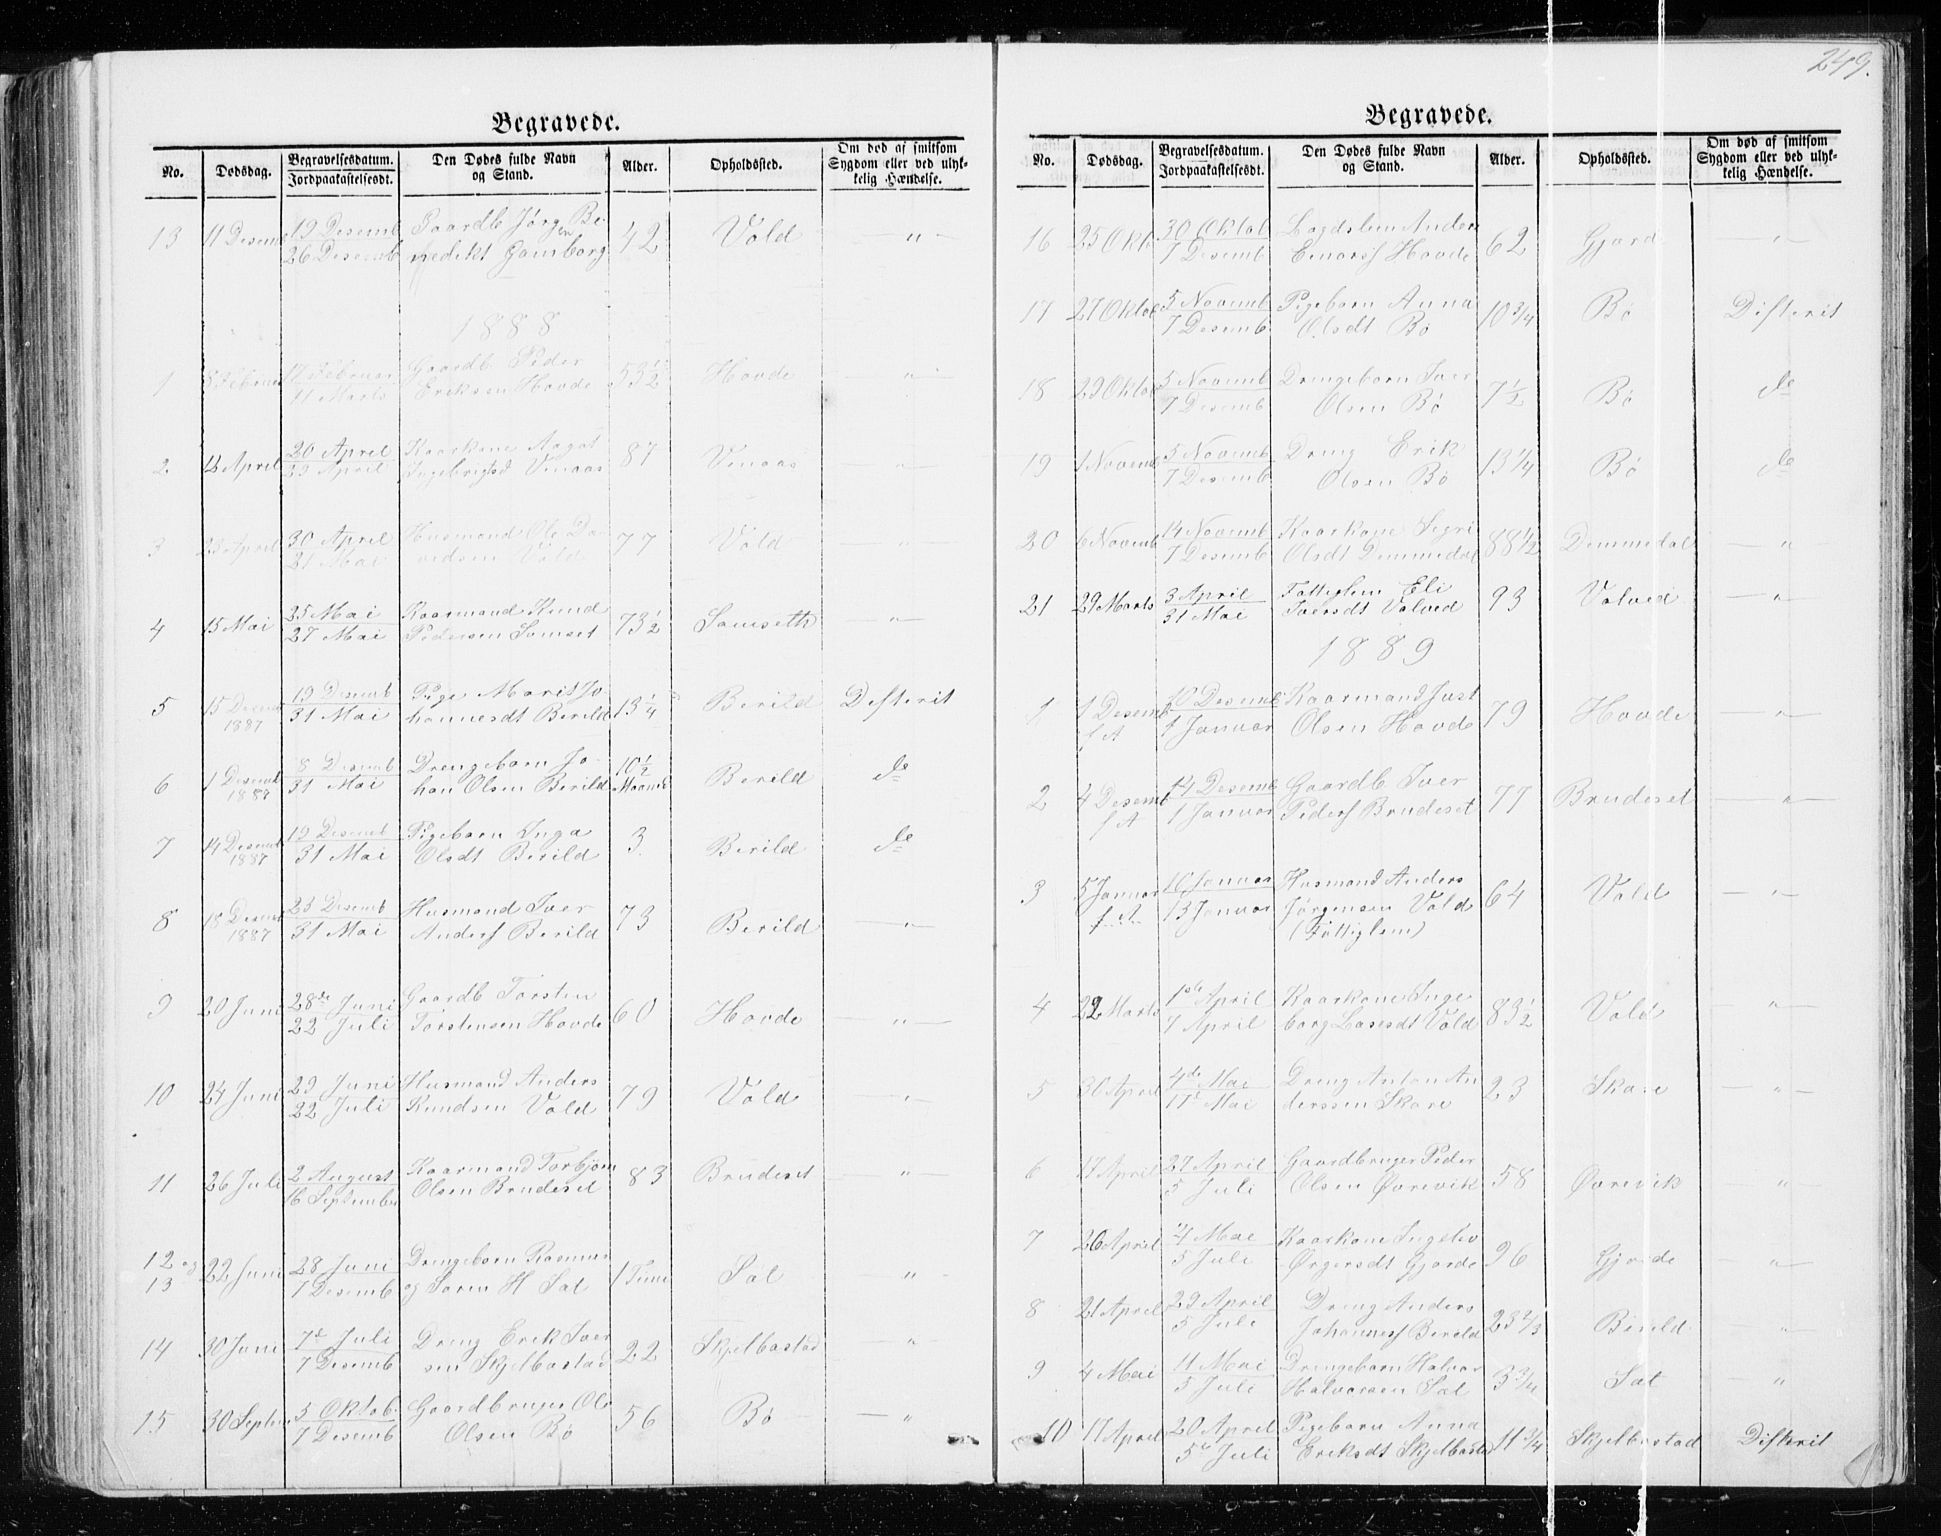 249.
Begravede.
No. Dødsdag. Begravelsesdatum. Jordpaakastelsesdt. Den Dødes fulde Navn og Stand. Alder. Opholdssted. Om død af smitsom Sygdom eller ved ulykkelig Hændelse.
13 11 Desemb 19 Desemb Gaardb Jørgen Be- 42 Vold — " —
26 Desemb nedikt Gamborg
1888
1 Februar 17 Februar Gaardb Peder 53 1/2 Hovde — " —
11 Marts Eriksen Hovde
2 April 20 April Kaarkone Aagot 87 Vinaas "
29 April Ingebrigtsd Vinaas
3 23 April 30 April Husmand Ole Da- 77 Vold — " —
21 Mai vidsen Vold
4 15 Mai 25 Mai Kaarmand Knud 73 1/2 Samseth — " —
27 Mai Pedersen Somset
5 15 Desemb 19 Desemb Pige Marit Jo- 13 1/4 Berild Difterit
1887 31 Mai hannesdt Berild
6 1 Desemb 8 Desemb Drengebarn Jo- 10 1/2 Berild do
1887 31 Mai han Olsen Berild Maaned
7 14 Desemb 19 Desemb Pigebarn Inga 3 Berild do
1887 31 Mai Olsdt Berild
8 18 Desemb 23 Desemb Husmand Iver 73 Berild — " —
1887 31 Mai Anders Berild
9 20 Juni 28de Juni Gaardb Torsten 60 Hovde — " —
22 Juli Torstensen Hovde
10 24 Juni 29 Juni Husmand Anders 79 Vold — " —
22 Juli Knudsen Vold
11 26 Juli 2 August Kaarmand Torbjørn 83 Brudeset — " —
16 September Olsen Brudeset
12 og 22 Juni 28 Juni Drengebørn Rasmus 1 Time Sat — " —
13 7 Desemb og Søren H Sat
14 30 Juni 7de Juli Dreng Erik Iver- 22 Skjelbostad "
7 Desemb sen Skjelbostad
15 30 Septem 5 Oktob. Gaardbruger Ole 56 Bø — "
7 Desemb Olsen Bø
Begravede.
No. Dødsdag. Begravelsesdatum. Jordpaakastelsesdt. Den Dødes fulde Navn og Stand. Alder. Opholdssted. Om død af smitsom Sygdom eller ved ulykkelig Hændelse.
16 25 Okt. 30 Oktob Lagdslem Anders 62 Gjørd — " —
7 Desemb Einars Hovde
17 27 Oktob 5 Novemb Pigebarn Anna 10 3/4 Bø Difterit
7 Desemb. Olsdt Bø
18 29 Oktob 5 Novemb Drengebarn Iver 7 1/2 Bø do
7 Desemb Olsen Bø
19 1 Novemb 5 Novemb Dreng Erik 13 1/4 Bø do
7 Desemb Olsen Bø
20 6 Novemb 14 Novemb Kaarkone Segri 88 1/2 Demmedal — " —
7 Desemb Olsdt Demmedal
21 29 Marts 3 April Fattiglem Eli 93 Volved — " —
31 Mai Iversdt Volved
1889
1 1 Desemb 10 Desemb Kaarmand Just 79 Hovde — " —
f A 1 Januar Olsen Hovde
2 4 Desemb 14 Desemb Gaardb Iver 77 Brudeset — " —
f A 1 Januar Peders Brudeset
3 5 Januar 10 Januar Husmand Anders 64 Vold — " —
f A 13 Januar Jørgensen Vold
(Fattiglem)
4 22 Marts 1ste April Kaarkone Inge- 83 1/2 Vold — " —
7 April borg Lasesdt Vold
5 30 April 4de Mai Dreng Anton An- 23 Skare — " —
17de Mai derssen Skare
6 17 April 27 April Gaardbruger Peder 58 Øvrevik — " —
5 Juli Olsen Øvrevik
7 26 April 4 Mai Kaarkone 96 Gjørde — " —
5 Juli Ørgersdt Gjørde
8 21 April 29 April Dreng Anders 23 2/3 Berild — " —
5 Juli Johannes Berild
9 4 Mai 11 Mai Drengebarn Halvor 3 3/4 Sat "
5 Juli Halvorsen Sat
10 17 April 20 April Pigebarn Anna 11 3/4 Skjelbostad Difterit
5te Juli Eriksdt Skjelbosta